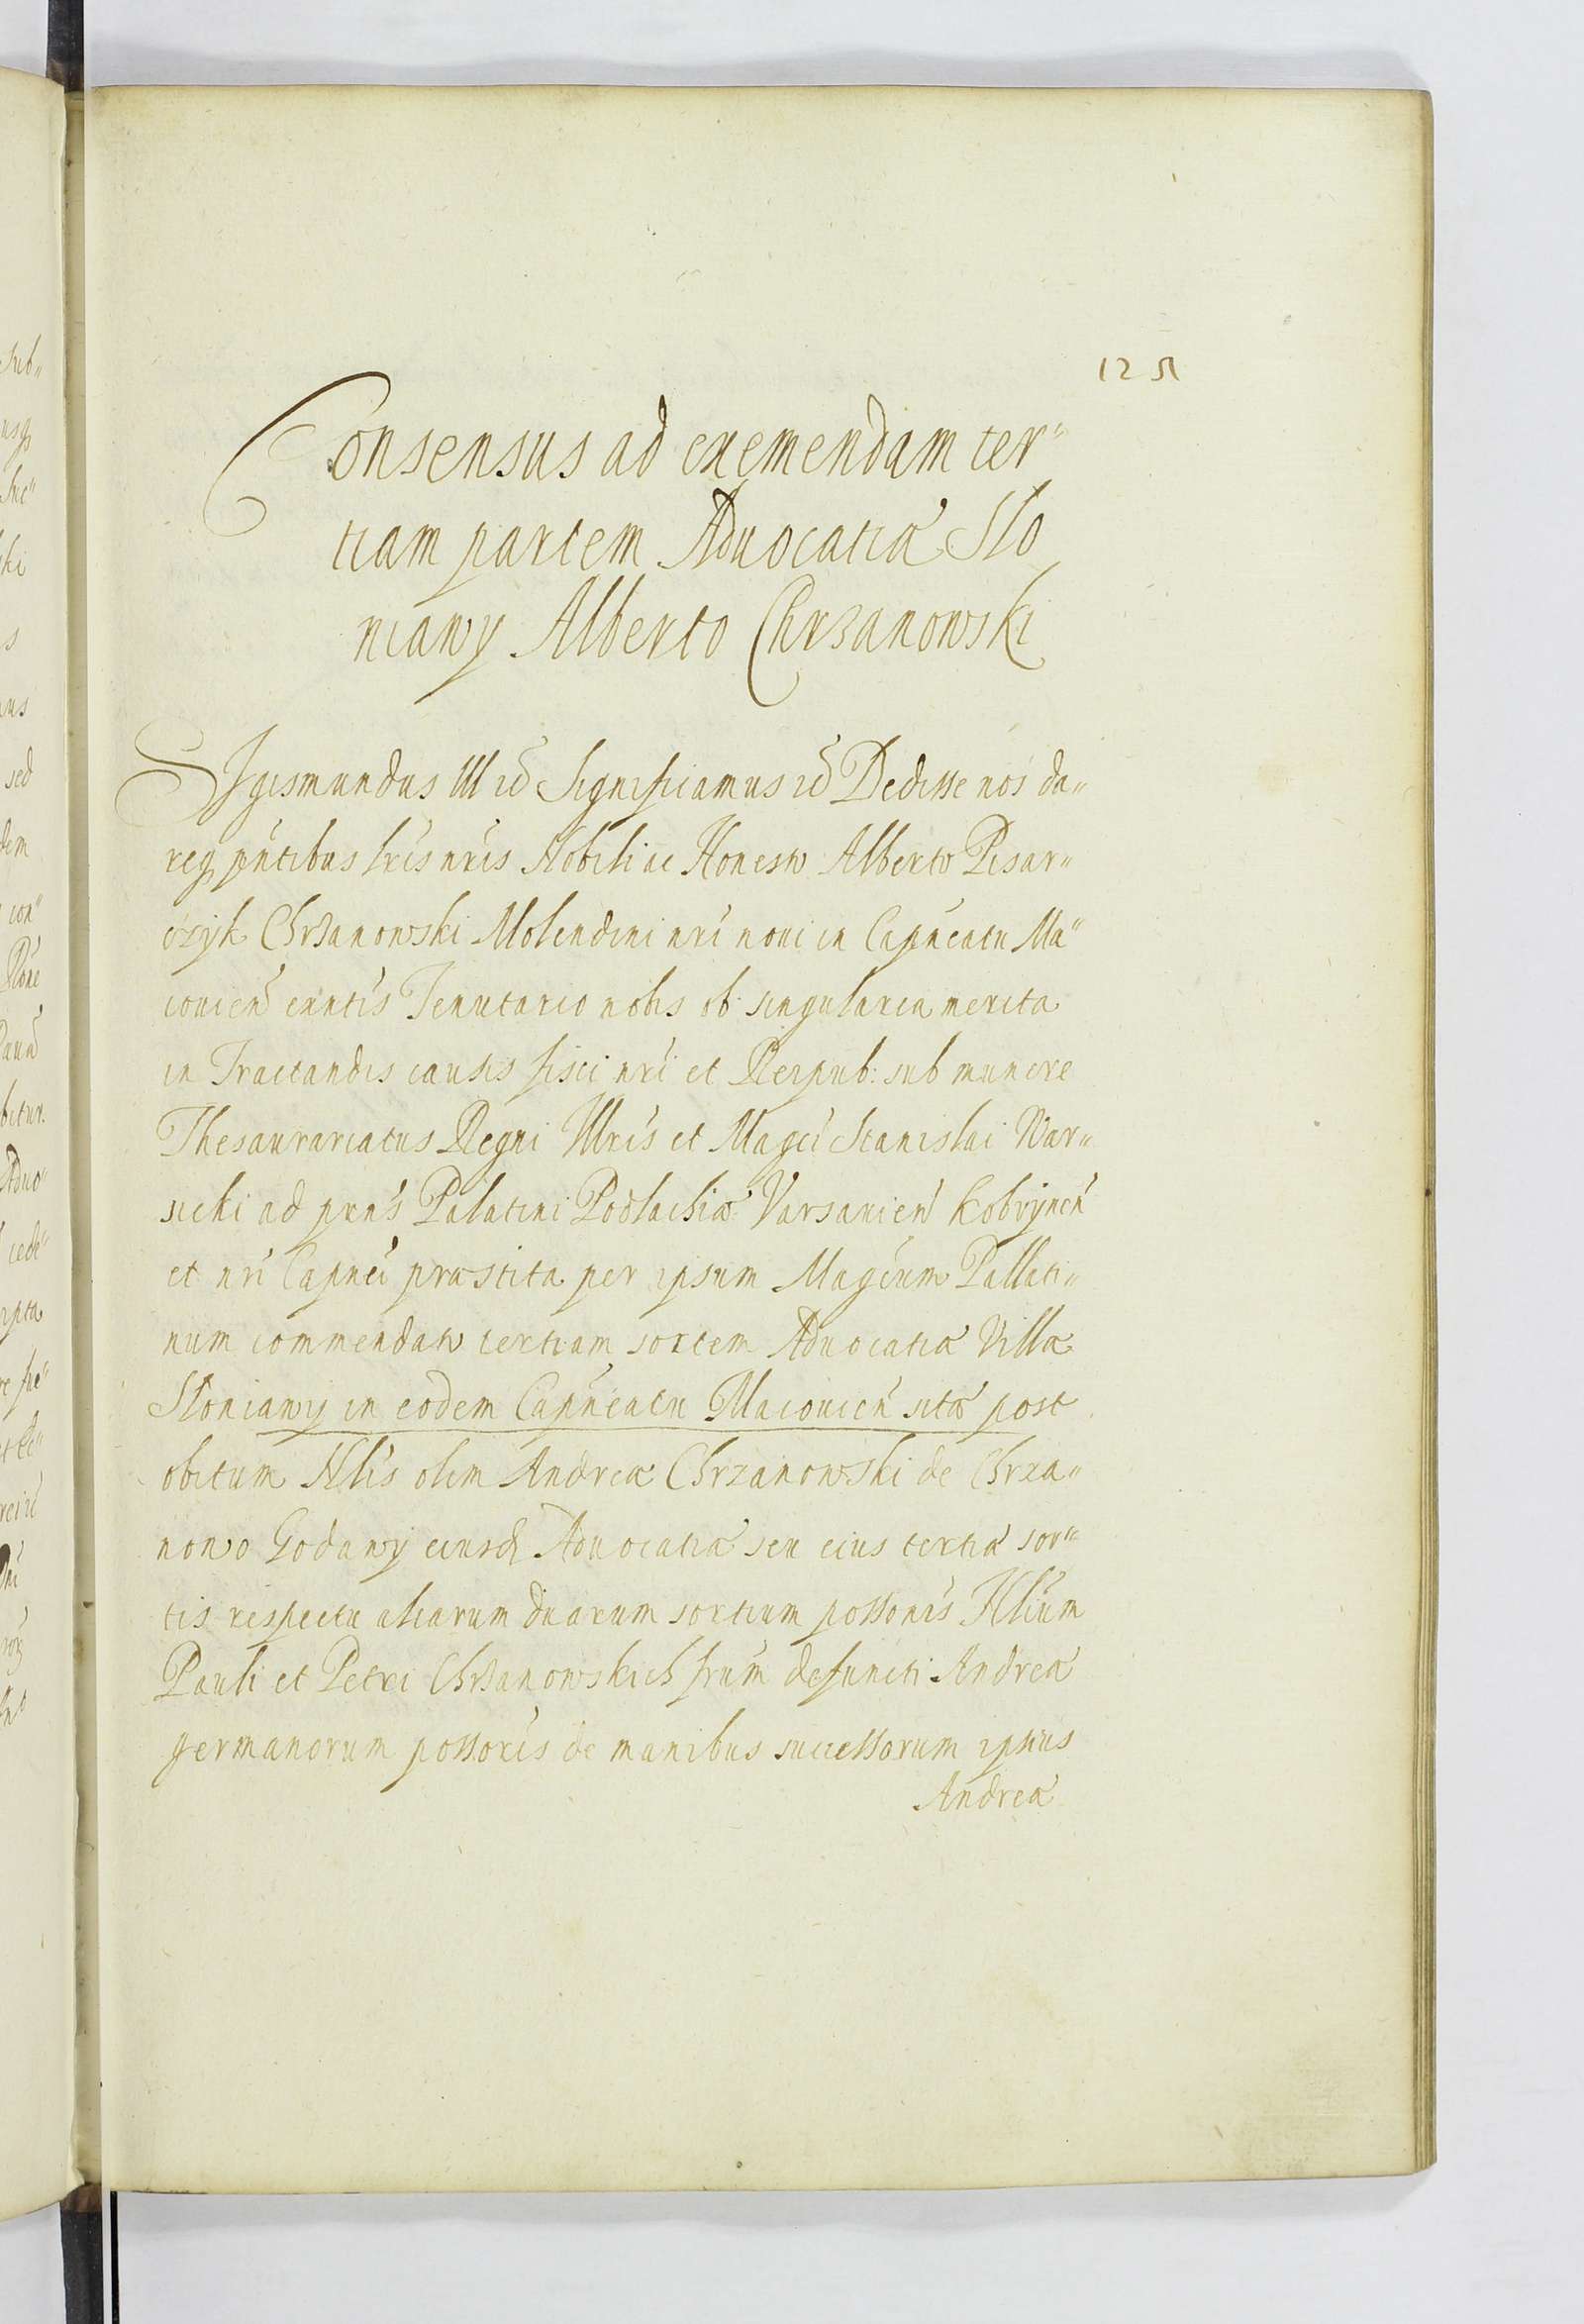 125
Consensus ad exemendam ter„
tiam partem Advocatiæ Slo
niawy Alberto Chrzanowski
Sigismundus III etc̃ Significamus etc̃ Dedisse nos da„
reqꝫ pñtibus lr̃is nr̃is Nobili ac Honesto Alberto Pisar„
czyk Chrzanowski Molendini nr̃i noui in Capñeatu Ma„
couieñ exñtis Tenutario nobis ob singularia merita
in Tractandis causis fisci nr̃i et Reipub: sub munere
Thesaurariatus Regni Illr̃is et Magci Stanislai War„
sicki ad præns Palatini Podlachiæ Varsauieñ Kobryneñ
et nr̃i Capnei præstita per ipsum Magcum Pallati„
num commendato tertiam sortem Advocatiæ Villæ
Sloniawy in eodem Capñeatu Macouieñ sitæ post
obitum Nlis olim Andreæ Chrzanowski de Chrza„
nowo Godawy eiusd Advocatiæ seu eius tertiæ sor„
tis respectu aliarum duarum sortium possonis Nlium
Pauli et Petri Chrzanowskich frum defuncti Andreæ
germanorum possoris de manibus successorum ipsius
Andreæ
sub„
ki
s
sed
dem
con„
bitur.
Advo„
cede„
ipta